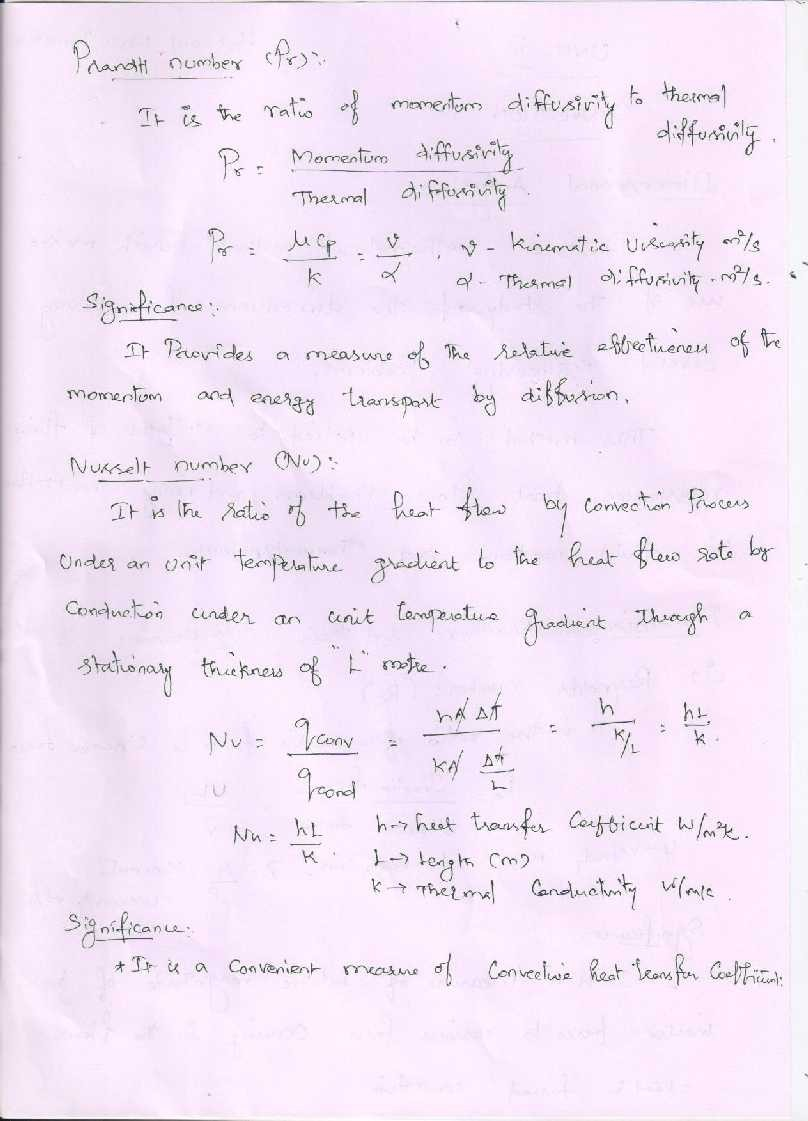 Prandtl number (Pr):-
It is the ratio of momentum diffusivity to thermal
diffusivity.
Pr = Momentum diffusivity / Thermal diffusivity
Pr = μCp / K = ν / α , ν - Kinematic Viscosity m²/s
α - Thermal diffusivity - m²/s.
Significance:-
It Provides a measure of the relative effectiveness of the
momentum and energy transport by diffusion.
Nusselt number (Nu):-
It is the ratio of the heat flow by convection Process
Under an unit temperature gradient to the heat flow rate by
Conduction under an unit temperature gradient through a
stationary thickness of "L" metre.
Nu = qconv / qcond = hA ΔT / KA ΔT/L = h / K/L = hL / k.
Nu = hL / K. h → heat transfer Coefficient W/m²k.
L → Length (m)
K → Thermal Conductivity W/mk.
Significance:-
* It is a convenient measure of Convective heat transfer Coefficient.